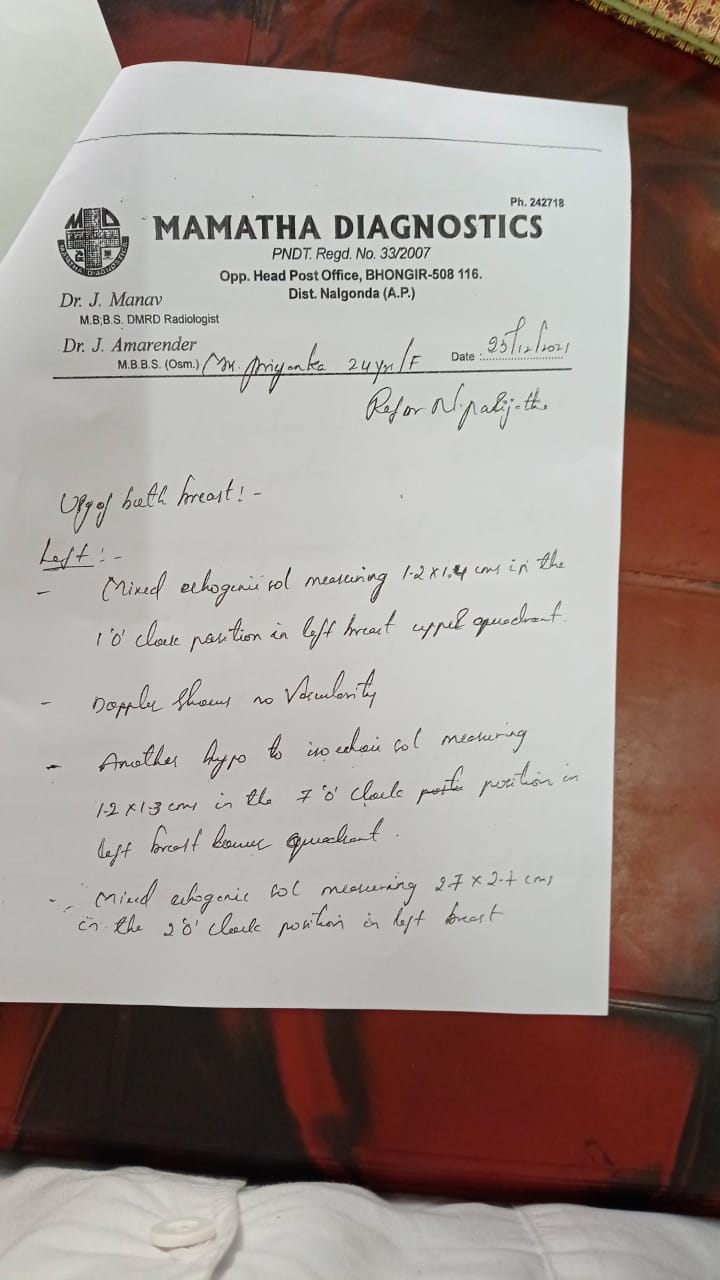 Ph. 242718
MAMATHA DIAGNOSTICS
PNDT. Regd. No. 33/2007
Opp. Head Post Office, BHONGIR-508 116.
Dist. Nalgonda (A.P.)
Dr. J. Manav
M.B;B.S. DMRD Radiologist
Dr. J. Amarender
M.B.B.S. (Osm.) Priyanka 24 yrs/F Date : 25/12/2021
both breast! -
Left : -
- Mixed echogenic sol measuring 1.2 x 1.4 cms in the
1 'o' clock position in left breast upper quadrant.
- Doppler shows no Vascularity
- Another hypo to isoechoic sol measuring
1.2 x 1.3 cms in the 7 'o' clock position in
left breast lower quadrant.
- Mixed echogenic sol measuring 2.7 x 2.7 cms
in the 2 'o' clock position in left breast